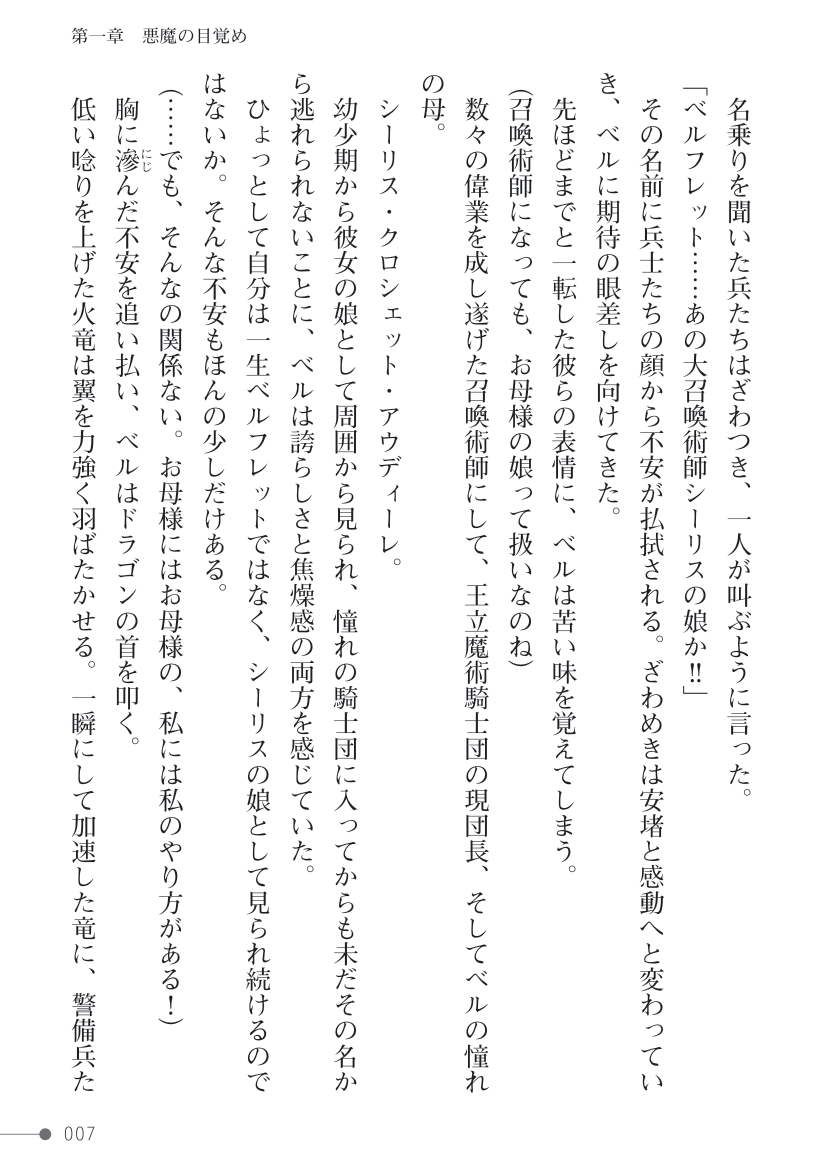 第一章　悪魔の目覚め
　名乗りを聞いた兵たちはざわつき、一人が叫ぶように言った。
「ベルフレット……あの大召喚術師シーリスの娘か‼」
　その名前に兵士たちの顔から不安が払拭される。ざわめきは安堵と感動へと変わってい
き、ベルに期待の眼差しを向けてきた。
　先ほどまでと一転した彼らの表情に、ベルは苦い味を覚えてしまう。
（召喚術師になっても、お母様の娘って扱いなのね）
　数々の偉業を成し遂げた召喚術師にして、王立魔術騎士団の現団長、そしてベルの憧れ
の母。
　シーリス・クロシェット・アウディーレ。
　幼少期から彼女の娘として周囲から見られ、憧れの騎士団に入ってからも未だその名か
ら逃れられないことに、ベルは誇らしさと焦燥感の両方を感じていた。
　ひょっとして自分は一生ベルフレットではなく、シーリスの娘として見られ続けるので
はないか。そんな不安もほんの少しだけある。
（……でも、そんなの関係ない。お母様にはお母様の、私には私のやり方がある！）
　胸に滲んだ不安を追い払い、ベルはドラゴンの首を叩く。
にじ
　低い唸りを上げた火竜は翼を力強く羽ばたかせる。一瞬にして加速した竜に、警備兵た
007